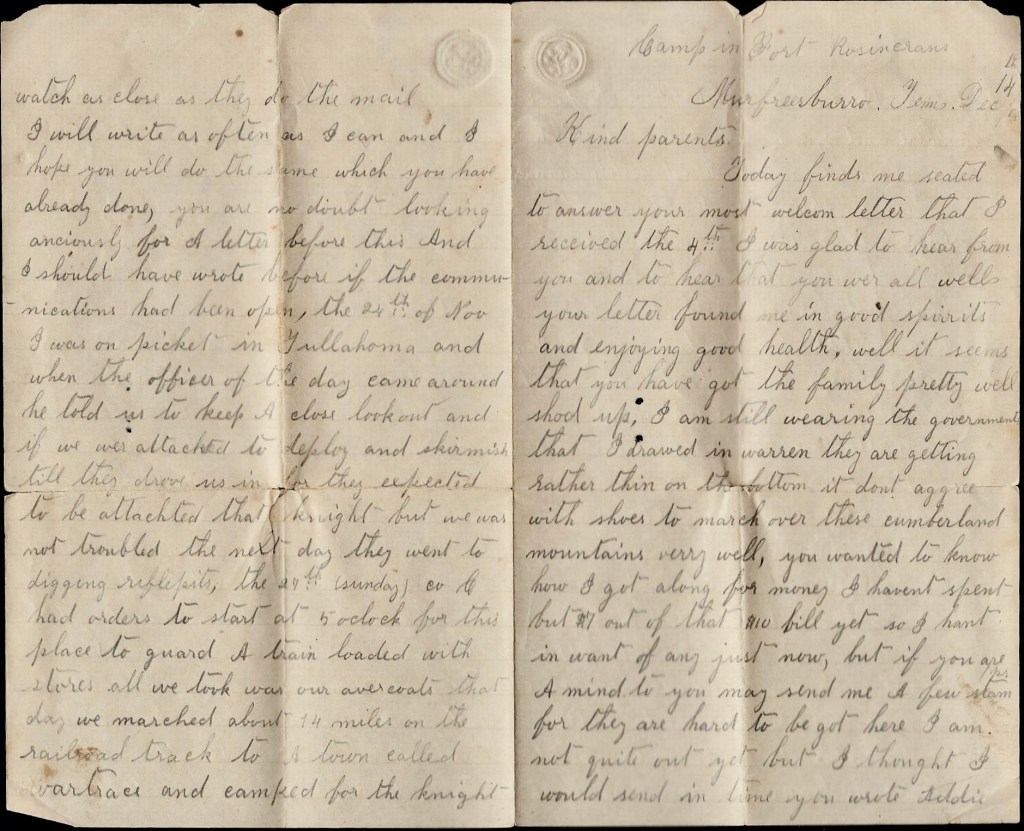 Camp in Fort Rosincrans
Murfreesburro. Tenn. Dec 14
Kind parents.
Today finds me seated
to answer your most welcom letter that I
received the 4th I was glad to hear from
you and to hear that you wer all wells
your letter found me in good spirrits
and enjoying good health. well it seems
that you have got the family pretty well
shod up, I am still wearing the government
that I drawed in warren they are getting
rather thin on the bottom it dont aggree
with shoes to march over these cumberland
mountains verry well, you wanted to know
how I got along for money I havent spent
but $7 out of that $10 bill yet so I hant
in want of any just now, but if you are
A mind to you may send me A few stamps
for they are hard to be got here I am.
not quite out yet but I thought I
would send in time you wrote Addie
watch as close as they do the mail
I will write as often as I can and I
hope you will do the same which you have
already done, you are no doubt looking
anciously for A letter before this And
I should have wrote before if the commu-
-nications had been open, the 24th of Nov
I was on picket in Tullahoma and
when the officer of the day came around
he told us to keep A close lookout and
if we wer attacked to deploy and skirmish
till they drove us in for they expected
to be attachted that knight but we was
not troubled the next day they went to
digging riflepits, the 27th (sunday) co C
had orders to start at 5 oclock for this
place to guard A train loaded with
stores all we took was our avercoats that
day we marched about 14 miles on the
railroad track to A town called
wartrace and camped for the knight